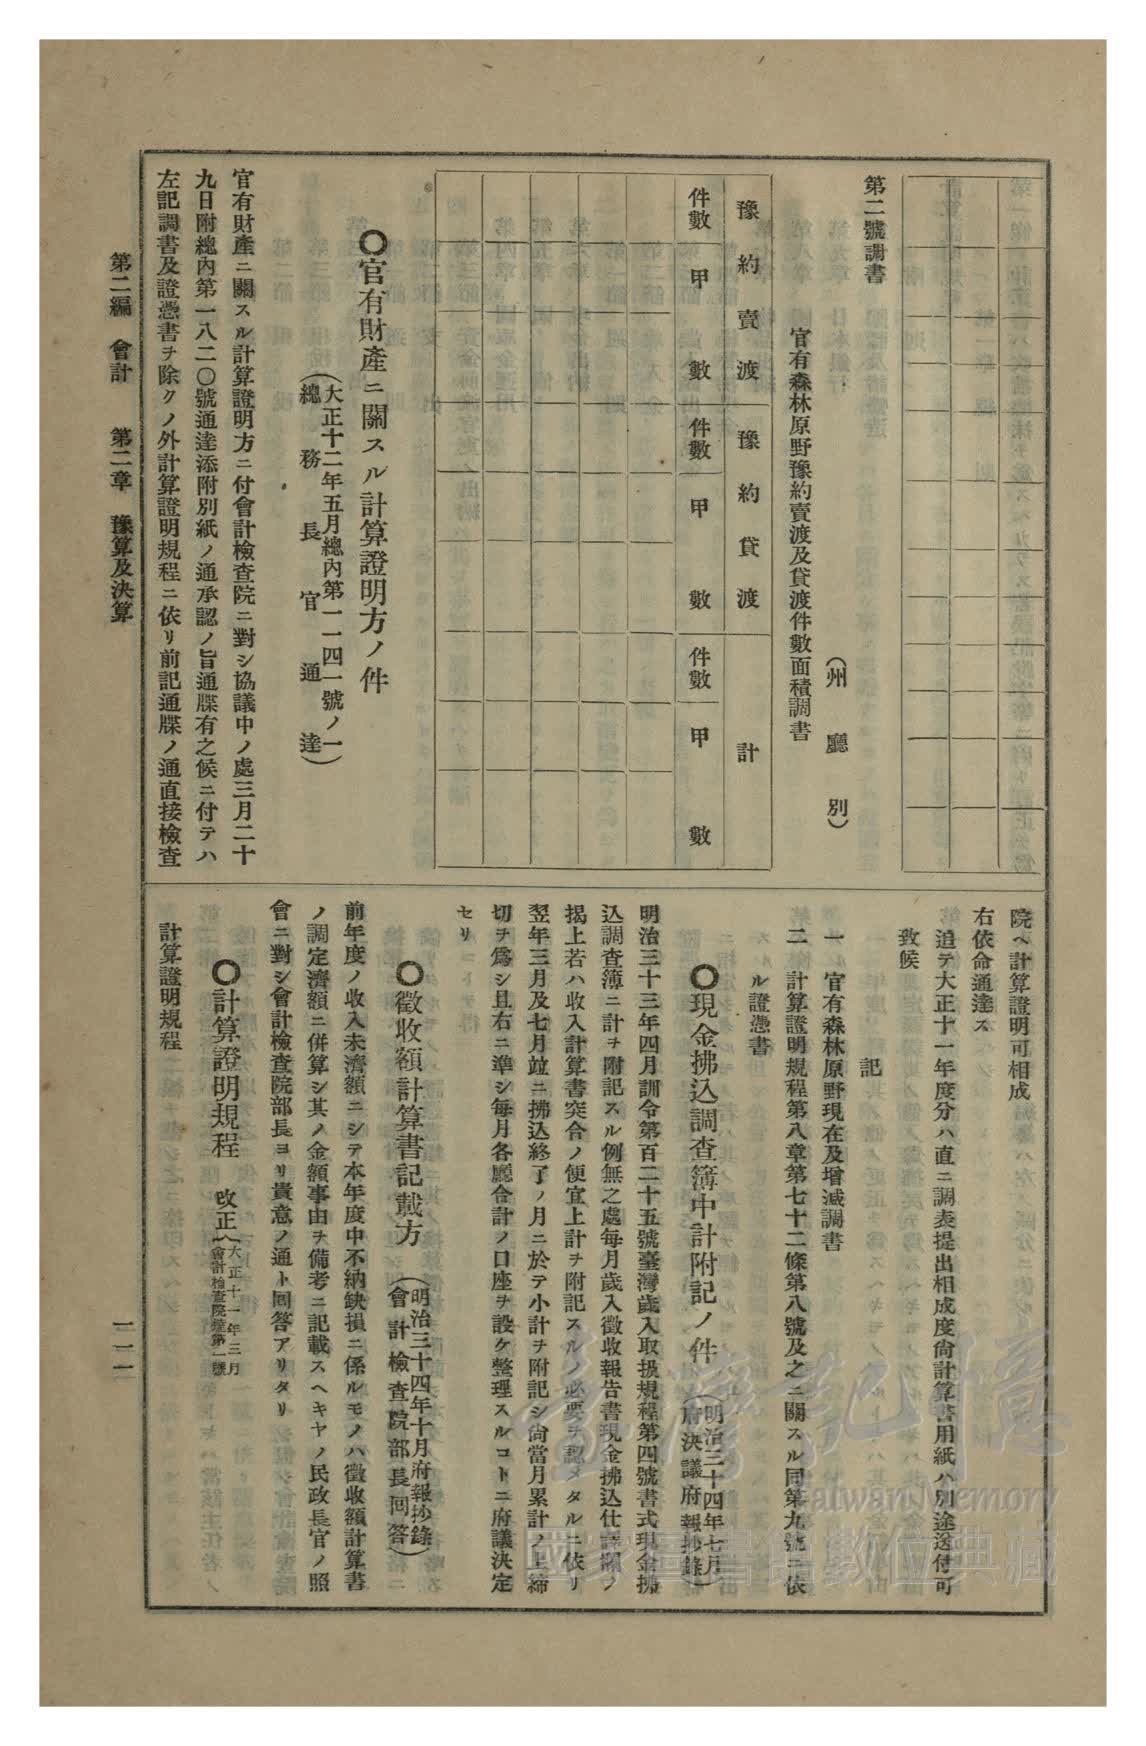 第二號調書
(州廳別)
官有森林原野豫約賣渡及貸渡件數面積調書
豫約賣渡
豫約貸渡
計
件數
甲數
件數
甲數
件數
甲數
〇官有財產ニ關スル計算證明方ノ件
(大正十二年五月總內第一一四一號ノ一)
總務長官通達)
官有財產ニ關スル計算證明方ニ付會計檢查院ニ對シ協議中ノ處三月二十
九日附總內第一八二〇號通達添附別紙ノ通承認ノ旨通牒有之候ニ付テハ
左記調書及證憑書ヲ除クノ外計算證明規程ニ依リ前記通牒ノ通直接檢查
院ヘ計算證明可相成
右依命通達ス
追テ大正十一年度分ハ直ニ調表提出相成度尙計算書用紙ハ別途送付可
致候
記
一 官有森林原野現在及增減調書
二 計算證明規程第八章第七十二條第八號及之ニ關スル同第九號ニ依
ル證憑書
〇現金拂込調查簿中計附記ノ件
(明治三十四年七月
府決議府報抄錄)
明治三十三年四月訓令第百二十五號臺灣歲入取扱規程第四號書式現金拂
込調查簿ニ計ヲ附記スル例無之處每月歲入徵收報告書現金拂込仕譯欄ノ
揭上若ハ收入計算書突合ノ便宜上計ヲ附記スルノ必要ヲ認メタルニ依リ
翌年三月及七月竝ニ拂込終了ノ月ニ於テ小計ヲ附記シ尙當月累計ノ上締
切ヲ爲シ且右ニ準シ每月各廳合計ノ口座ヲ設ケ整理スルコトニ府議決定
セリ
〇徵收額計算書記載方
(明治三十四年十月府報抄錄)
(會計檢查院部長回答)
前年度ノ收入未濟額ニシテ本年度中不納缺損ニ係ルモノハ徵收額計算書
ノ調定濟額ニ併算シ其ノ金額事由ヲ備考ニ記載スヘキヤノ民政長官ノ照
會ニ對シ會計檢查院部長ヨリ貴意ノ通ト回答アリタリ
〇計算證明規程
改正(大正十一年三月
會計檢查院達第一號
計算證明規程
第二編 會計 第二章 豫算及決算
一一一
臺灣記憶
Taiwan Memory
國家圖書館數位典藏